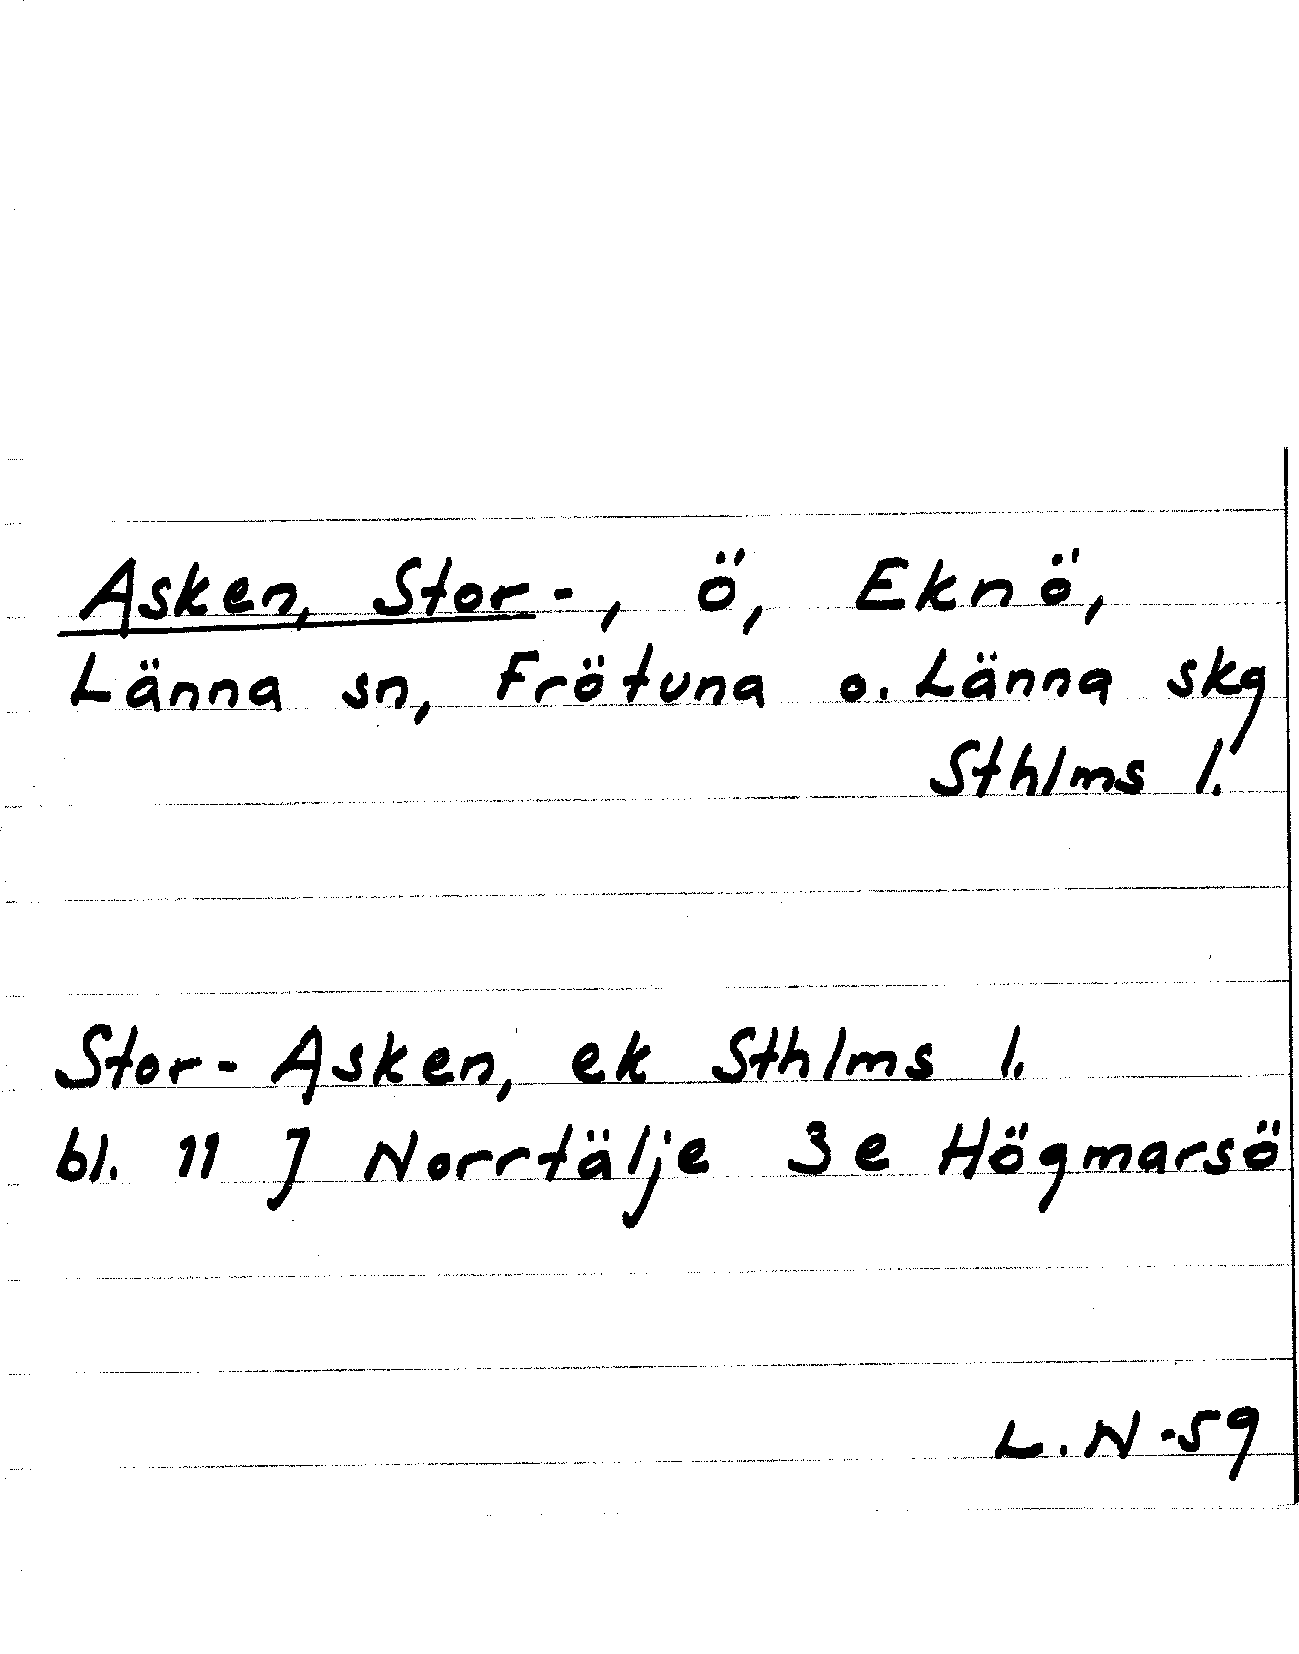 Asken, Stor-, ö, Eknö,
Länna sn, Frötuna o. Länna skg
Sthlms l.
Stor-Asken, ek Sthlms l.
bl. 11 J Norrtälje 3e Högmarsö
L.N-59